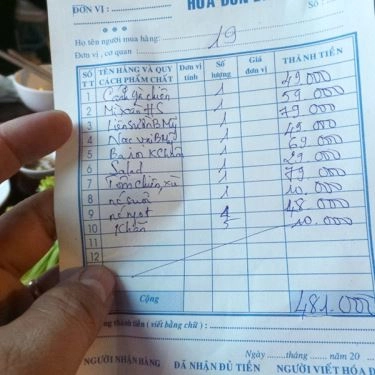 HÓA ĐƠN
ĐƠN VỊ :
Số :
Họ tên người mua hàng: 19
Đơn vị, cơ quan
SỐ TT TÊN HÀNG VÀ QUY CÁCH PHẨM CHẤT Đơn vị tính Số lượng Giá đơn vị THÀNH TIỀN
1 Cánh gà chiên 1 49.000
2 Mì xào HS 1 59.000
3 BMỳ 1 79.000
4 BMỳ 1 49.000
5 Ba rọi K 1 69.000
6 Salad 1 29.000
7 Tôm chiên xù 1 79.000
8 nc suối 1 10.000
9 nc ngọt 4 48.000
10 Khăn 5 10.000
11
12
Cộng 481.000
thành tiền ( viết bằng chữ ) :
Ngày ........tháng ........ năm 20
NGƯỜI NHẬN HÀNG ĐÃ NHẬN ĐỦ TIỀN NGƯỜI VIẾT HÓA Đ